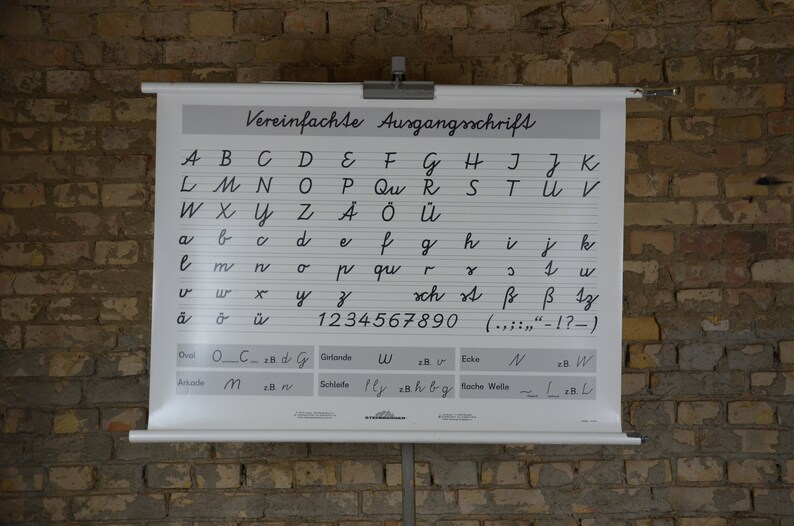 Vereinfachte Ausgangsschrift
A B C D E F G H I J K
L M N O P Qu R S T U V
W X Y Z Ä Ö Ü
a b c d e f g h i j k
l m n o p qu r s s t u
v w x y z sch st ß ß tz
ä ö ü 1 2 3 4 5 6 7 8 9 0 ( . , ; : „ “ - ! ? — )
Oval O C z.B. d G Girlande u z.B. v Ecke N z.B. W
Arkade m z.B. n Schleife l l j z.B. h b g flache Welle ~ z.B. L
STEINBERGER